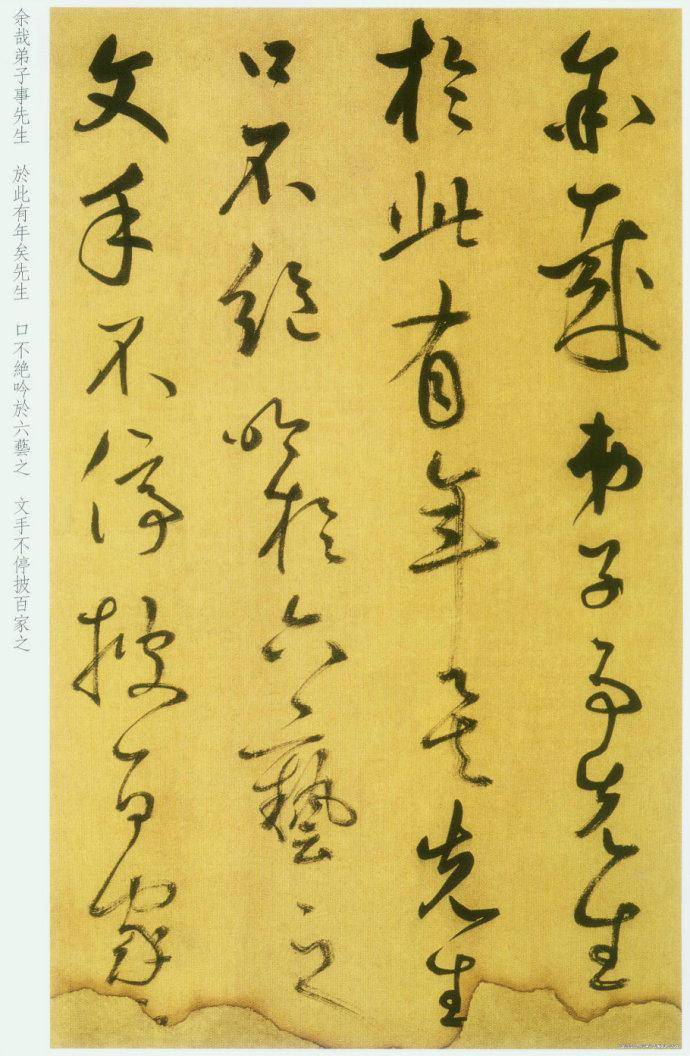 余哉弟子事先生
於此有年矣先生
口不絶吟於六藝之
文手不停披百家之
余哉弟子事先生　於此有年矣先生　口不絶吟於六藝之　文手不停披百家之